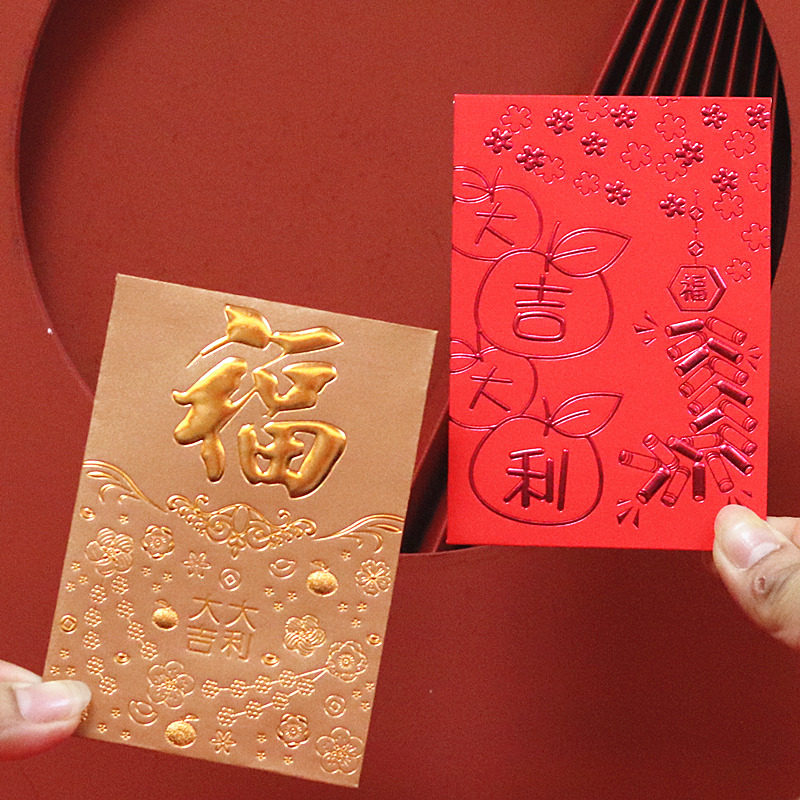 福
大大
吉利
大
吉
大
利
福